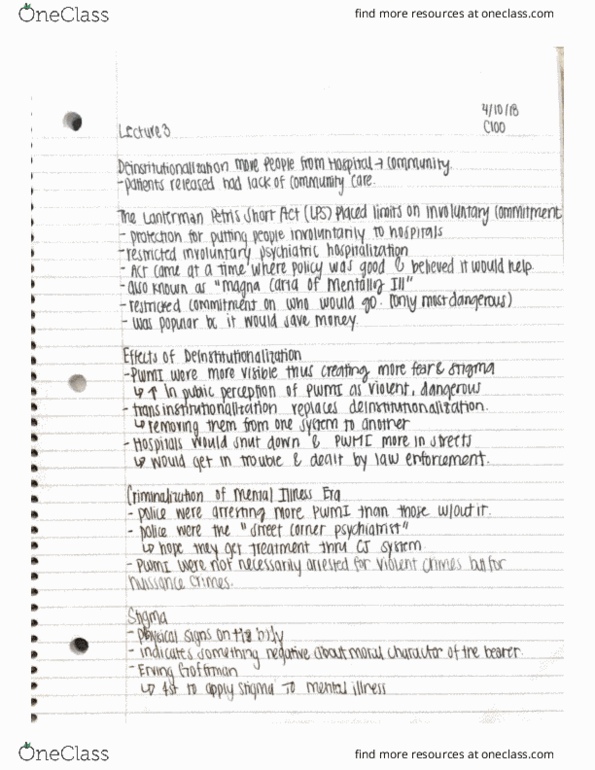 OneClass
find more resources at oneclass.com
4/10/18
Lecture 3
C100
Deinstitutionalization more people from Hospital → Community.
-patients released had lack of community care.
The Lanterman Petris Short Act (LPS) placed limits on involuntary commitment
- protection for putting people involuntarily to hospitals
-restricted involuntary psychiatric hospitalization
- Act came at a time where policy was good & believed it would help.
-also known as "magna Carta of Mentally Ill"
-restricted commitment on who would go. (only most dangerous)
- was popular bc it would save money.
Effects of Deinstitutionalization
-PWMI were more visible thus creating more fear & stigma
↳ ↑ In public perception of PWMI as violent, dangerous
- transinstitutionalization replaces deinstitutionalization.
↳ removing them from one system to another
- Hospitals would shut down & PWMI more in streets
↳ would get in trouble & dealt by law enforcement.
Criminalization of Mental Illness Era
- police were arresting more PWMI than those w/out it.
- police were the "street corner psychiatrist"
↳ hope they get treatment thru CJ system.
- PWMI were not necessarily arrested for violent crimes but for
nuissance crimes.
Stigma
- physical signs on the body
- indicates something negative about moral character of the bearer.
- Erving Goffman
↳ 1st to apply stigma to mental illness
OneClass
find more resources at oneclass.com